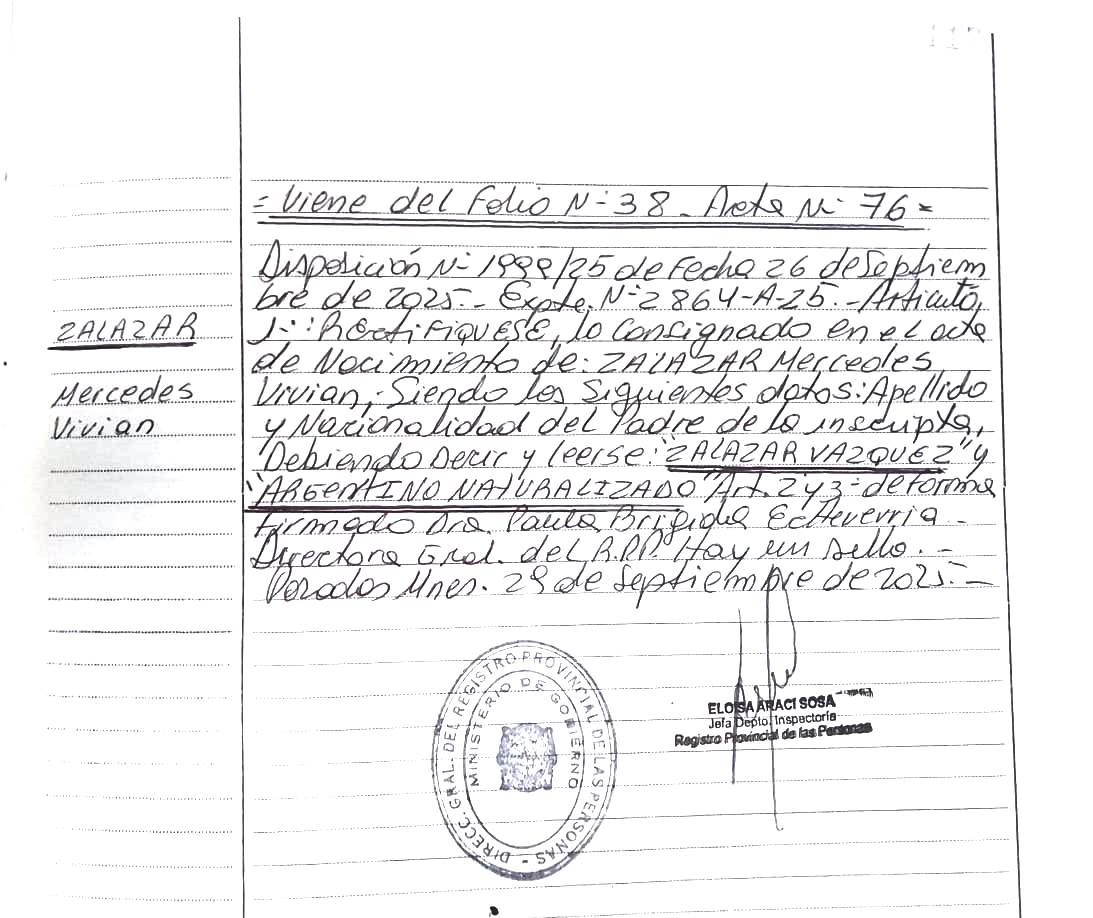 = Viene del Folio N- 38 - Acta N- 76 =
Disposición N- 1999/25 de Fecha 26 de Septiem
bre de 2025.- Expte. N- 2864-A-25.- Articuló,
1-: RECTIFIQUESE, lo consignado en el acta
de Nacimiento de: ZALAZAR Mercedes
Vivian, Siendo los Siguientes datos: Apellido
y Nacionalidad del Padre de la inscripta,
Debiendo Decir y leerse: "ZALAZAR VAZQUEZ" y
"ARGENTINO NATURALIZADO" Art. 2 y 3- de forma
Firmado Dra. Paula Brigida Echeverria -
Directora Gral. del R.P.P. Hay un sello. -
Posadas Mnes. 29 de Septiembre de 2025.-
ZALAZAR
Mercedes
Vivian
DIRECC. GRAL. DEL REGISTRO PROVINCIAL DE LAS PERSONAS -
MINISTERIO DE GOBIERNO
ELOISA ARACI SOSA
Jefa Depto. Inspectoría
Registro Provincial de las Personas